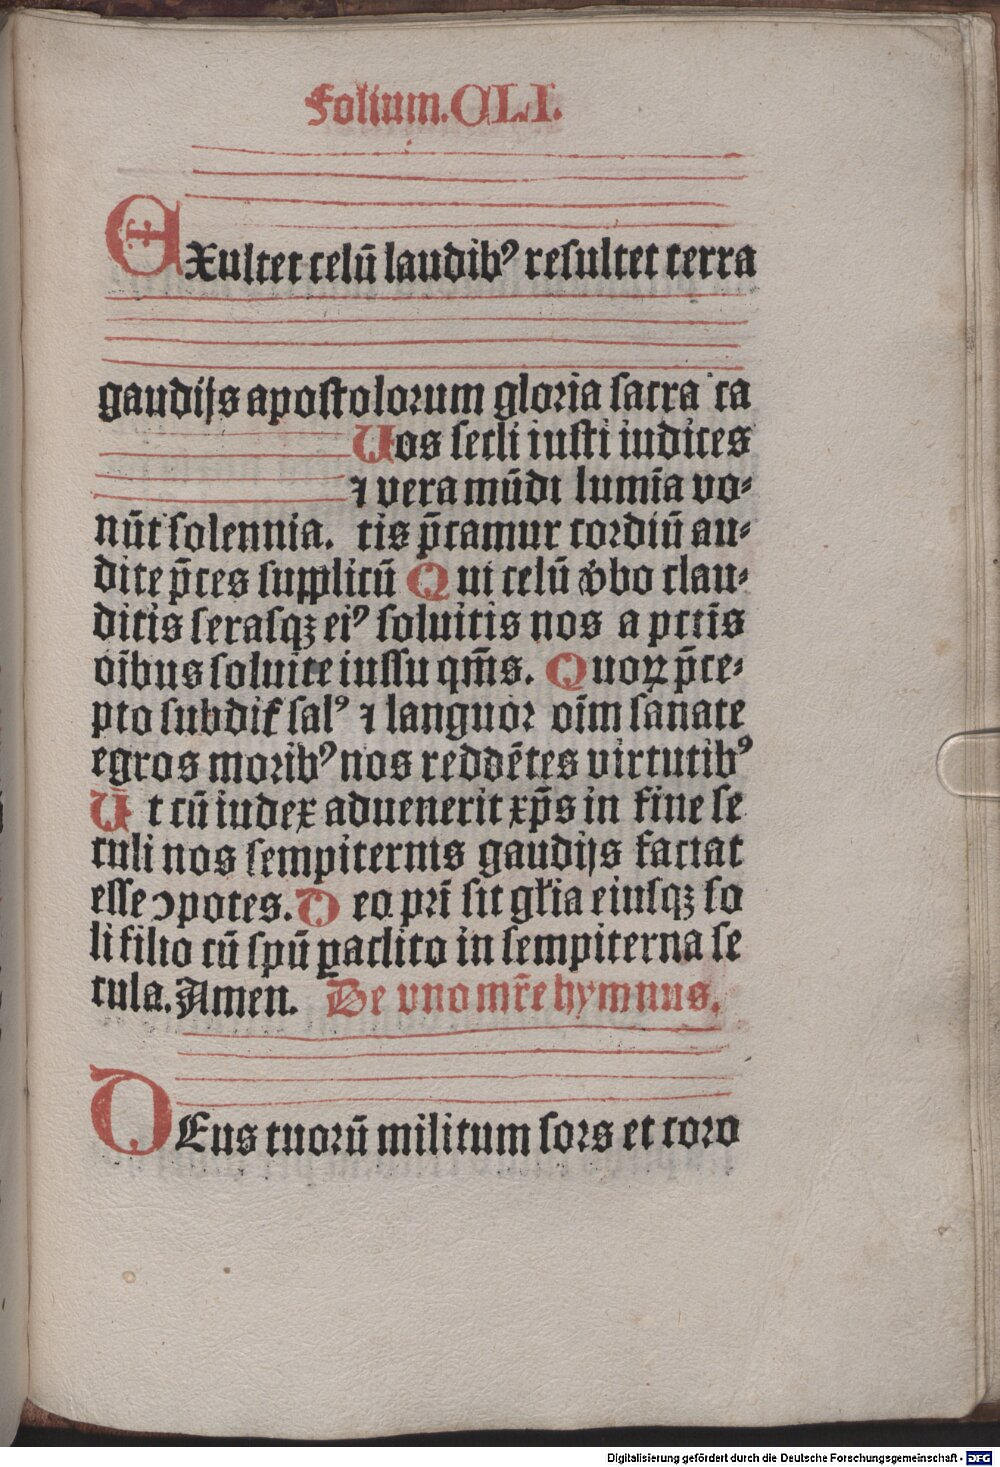 Folium.CLI.
EXultet celū laudibꝰ resultet terra
gaudijs apostolorum gloria sacra ca
Uos secli iusti iudices
⁊ vera mūdi lumīa vo-
nūt solennia. tis p̄camur cordiū au-
dite p̄ces supplicū Qui celū ꝟbo clau-
ditis serasqꝫ eiꝰ soluitis nos a pctīs
oībus soluite iussu qm̄s. Quoꝝ p̄ce-
pto subdit̄ salꝰ ⁊ languor oīm sanate
egros moribꝰ nos reddētes virtutibꝰ
Ut cū iudex aduenerit xp̄s in fine se
culi nos sempiternis gaudijs faciat
esse ꝯpotes. Deo pr̄i sit gl̄ia eiusqꝫ so
li filio cū spū ꝑaclito in sempiterna se
cula. Amen. De vno mr̄e hymnus.
DEus tuorū militum sors et coro
Digitalisierung gefördert durch die Deutsche Forschungsgemeinschaft - DFG